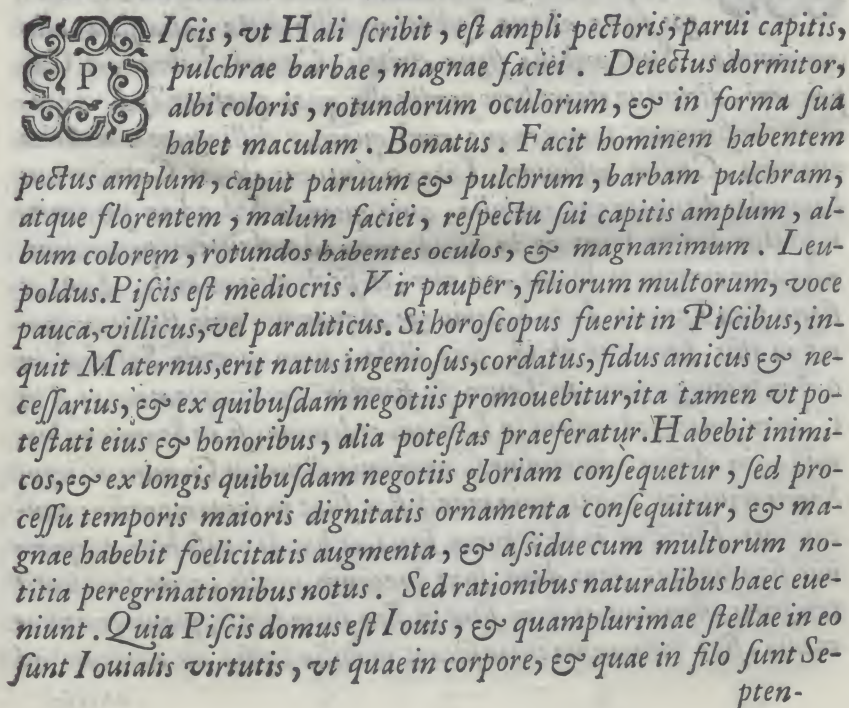 PIſcis, vt Hali ſcribit, eſt ampli pectoris, parui capitis,
pulchrae barbae, magnae faciei. Deiectus dormitor,
albi coloris, rotundorum oculorum, & in forma ſua
habet maculam. Bonatus. Facit hominem habentem
pectus amplum, caput paruum & pulchrum, barbam pulchram,
atque florentem, malum faciei, reſpectu ſui capitis amplum, al-
bum colorem, rotundos habentes oculos, & magnanimum. Leu-
poldus. Piſcis eſt mediocris. Vir pauper, filiorum multorum, voce
pauca, villicus, vel paraliticus. Si horoſcopus fuerit in Piſcibus, in-
quit Maternus, erit natus ingenioſus, cordatus, fidus amicus & ne-
ceſſarius, & ex quibuſdam negotiis promouebitur, ita tamen vt po-
teſtati eius & honoribus, alia poteſtas praeferatur. Habebit inimi-
cos, & ex longis quibuſdam negotiis gloriam conſequetur, ſed pro-
ceſſu temporis maioris dignitatis ornamenta conſequitur, & ma-
gnae habebit foelicitatis augmenta, & aſsidue cum multorum no-
titia peregrinationibus notus. Sed rationibus naturalibus haec eue-
niunt. Quia Piſcis domus eſt Iouis, & quamplurimae ſtellae in eo
ſunt Iouialis virtutis, vt quae in corpore, & quae in filo ſunt Se-
pten-